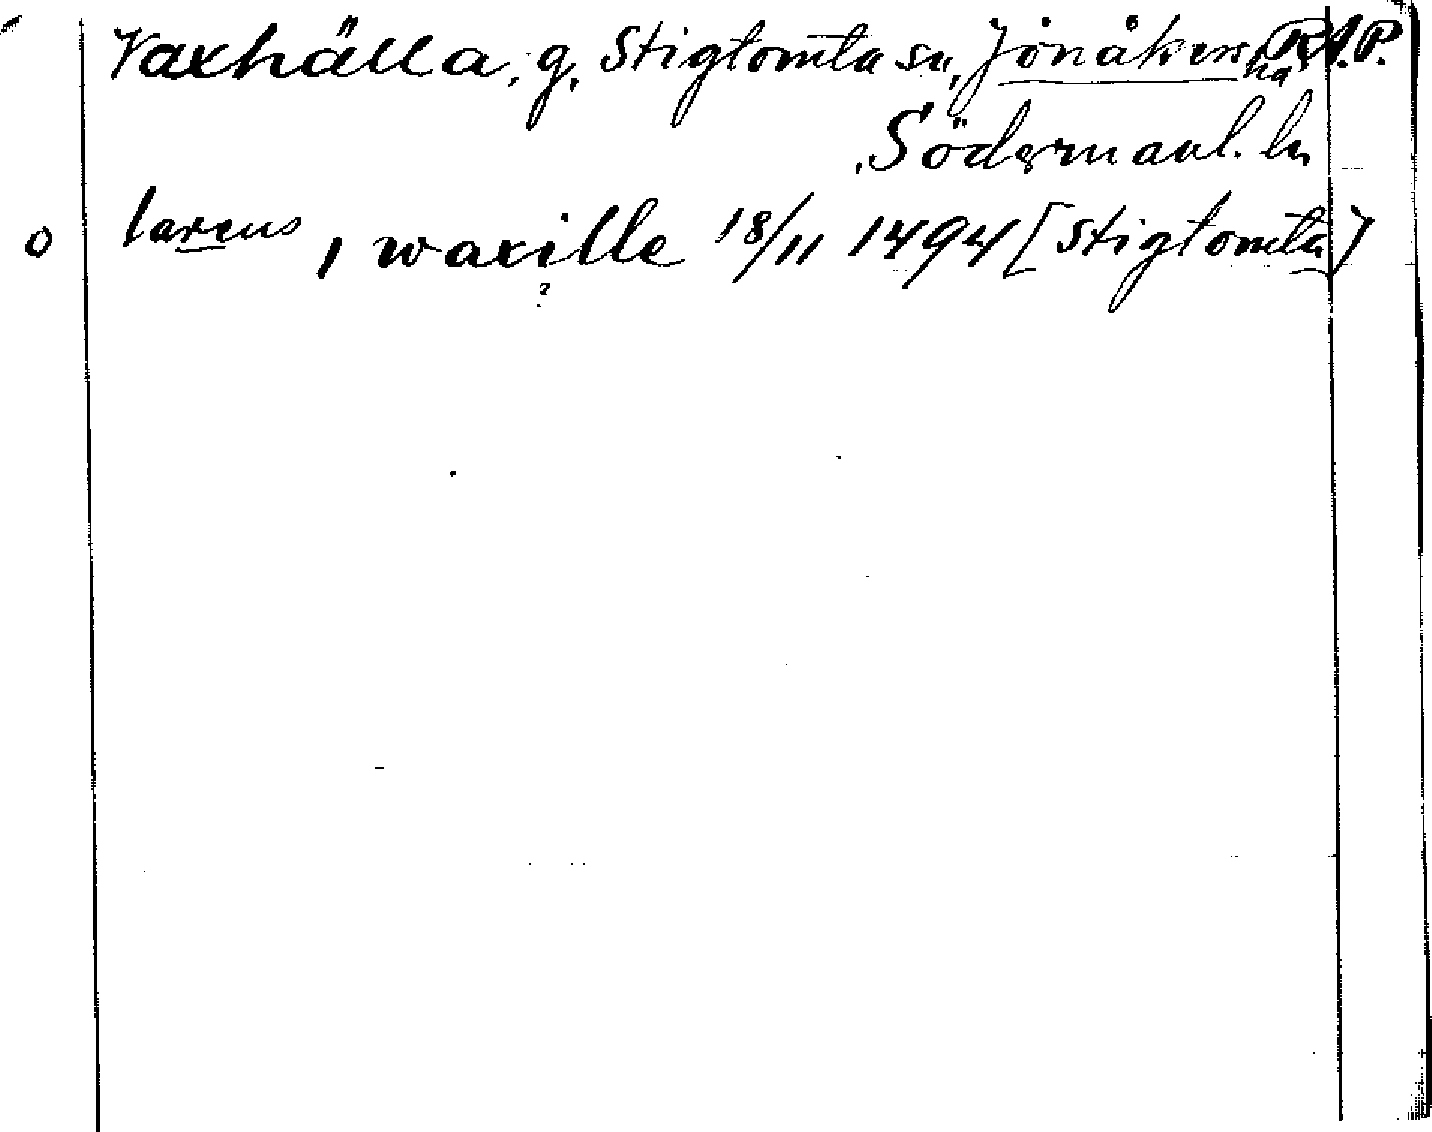 Vaxhälla, g, Stigtomta sn, Jönåkers hd R.A.P.
Södermanl. ln
o larens, i waxille 18/11 1494 [Stigtomta]
?